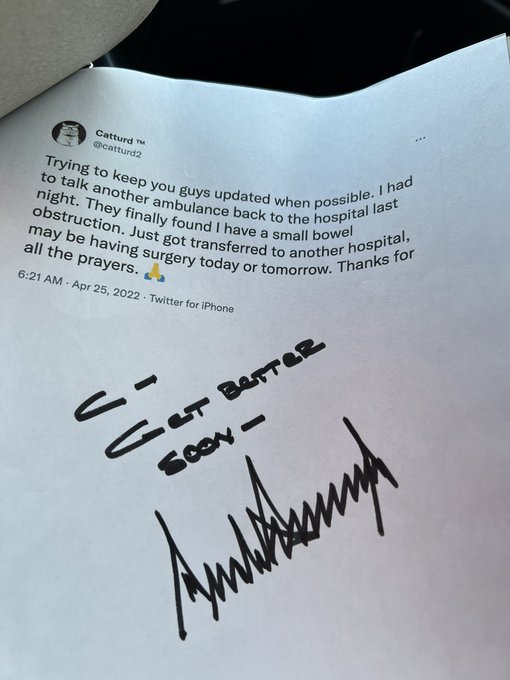 Catturd ™
@catturd2
Trying to keep you guys updated when possible. I had
to talk another ambulance back to the hospital last
night. They finally found I have a small bowel
obstruction. Just got transferred to another hospital,
may be having surgery today or tomorrow. Thanks for
all the prayers. 🙏
6:21 AM · Apr 25, 2022 · Twitter for iPhone
C -
GET BETTER
SOON -